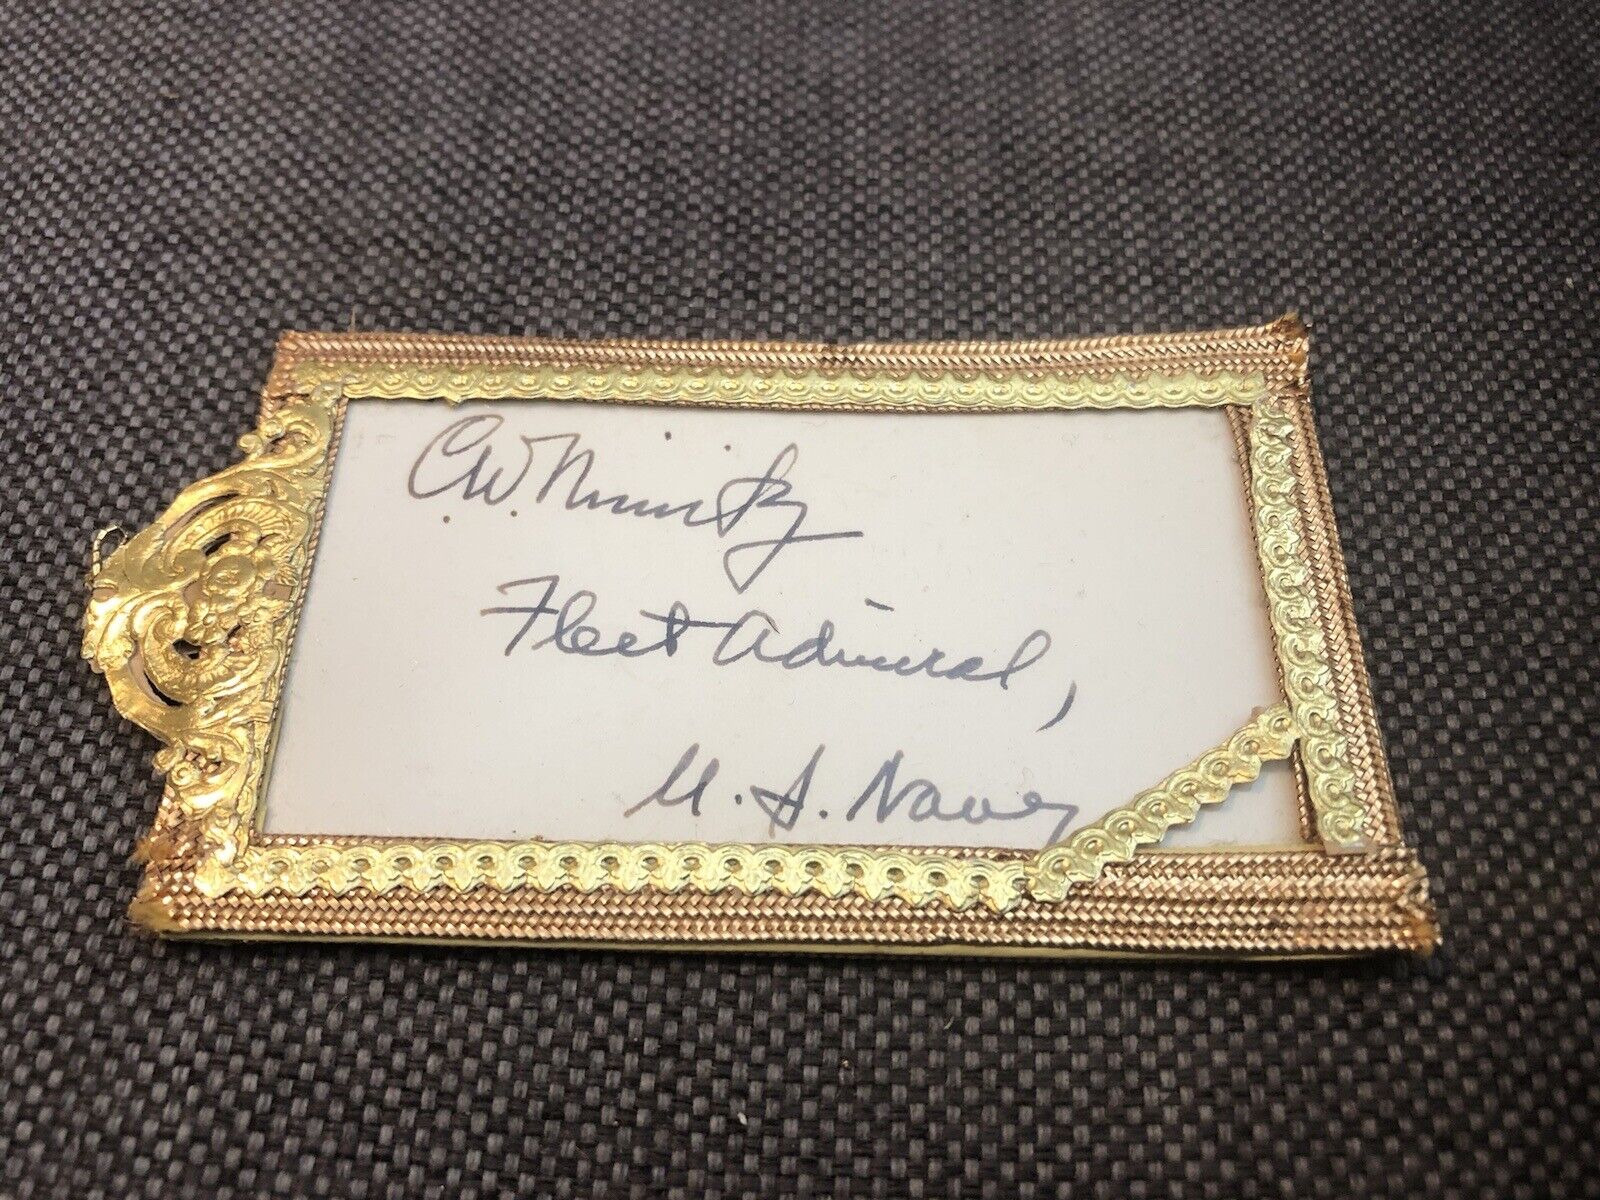 C.W. Nimitz
Fleet Admiral,
U. S. Navy